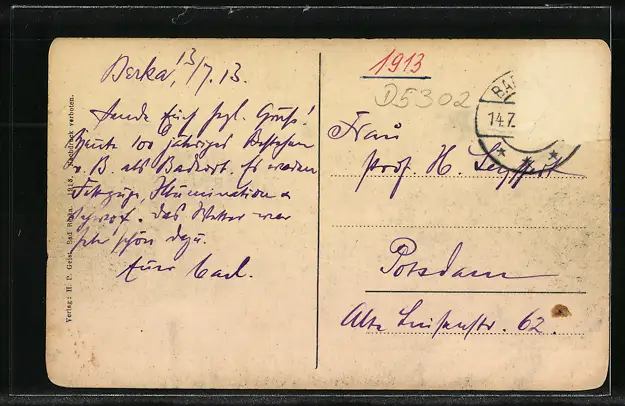 Berka, 13/7. 13.
Sende Euch hzgl. Gruß!
Heute 100 jähriges Bestehen
v. B. als Badeort. Es waren
Festzüge, Illumination &
Das Wetter war
sehr schön dazu.
Euer Carl.
Verlag: H. P. Geist, Bad Berka. 1913. Nachdruck verboten.
1913
D5302
BA
14.7.
Frau
Prof. H. Seyffert
Potsdam
Alte Luisenstr. 62.